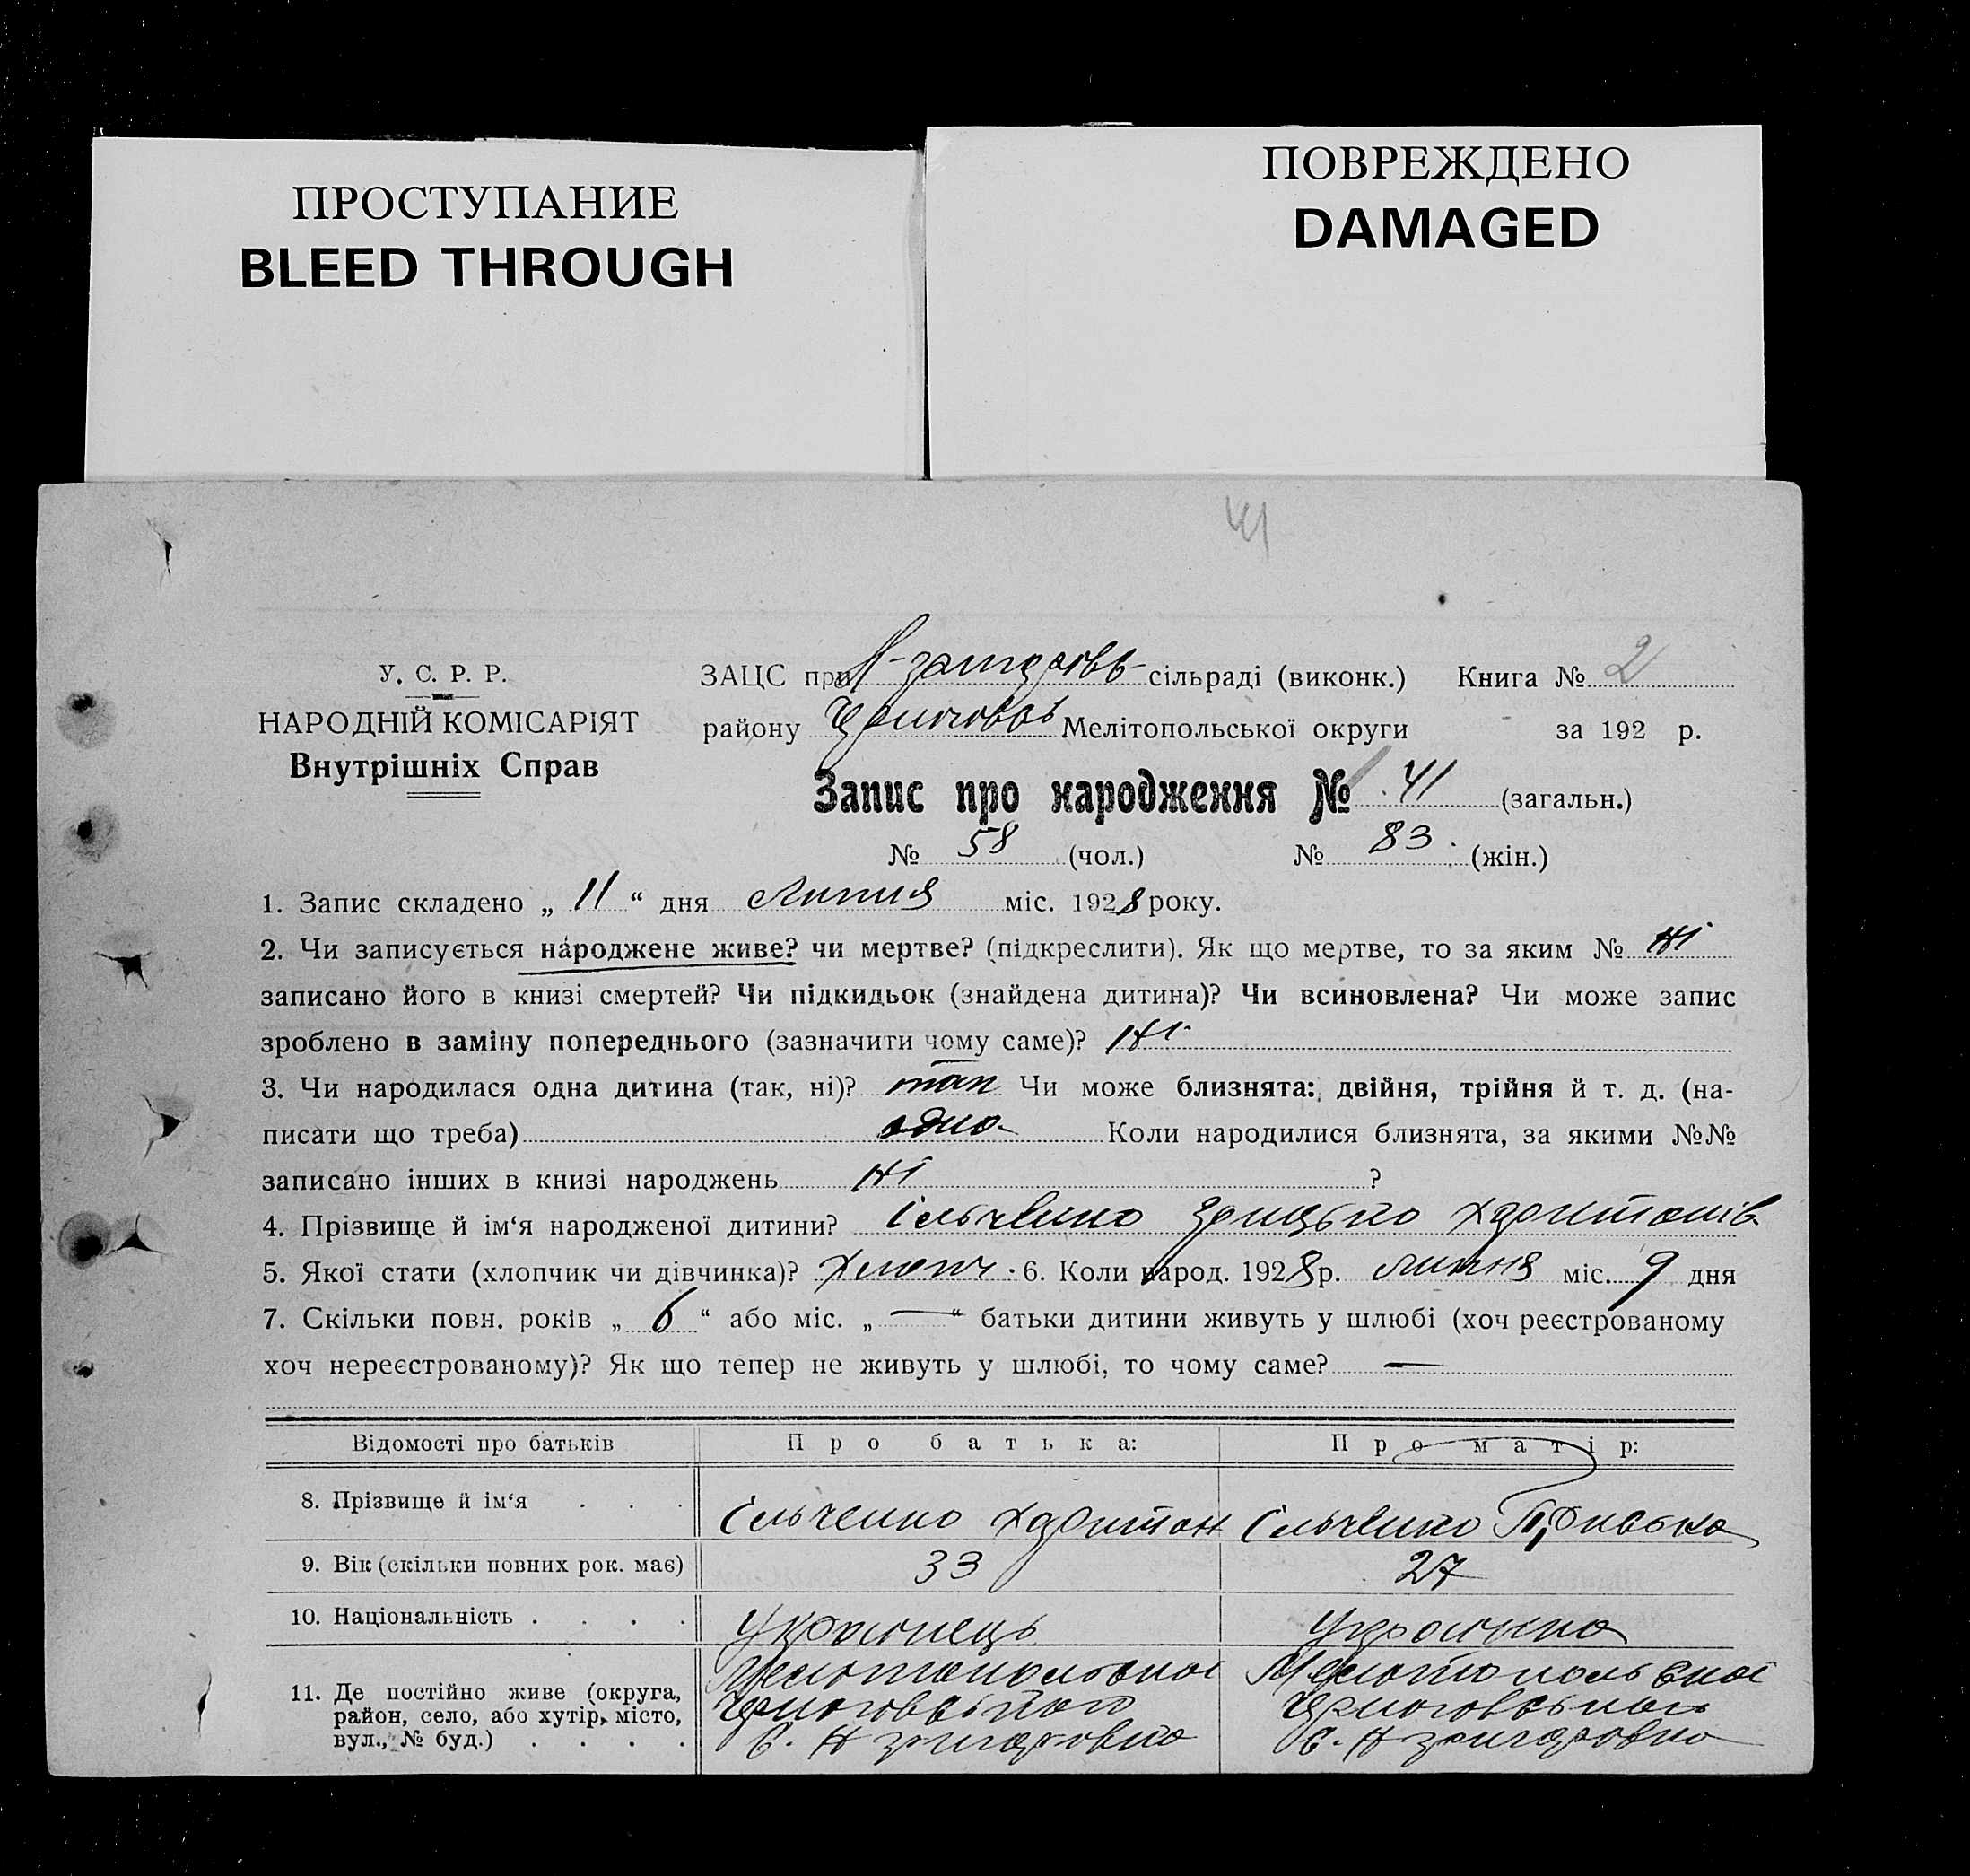 ПРОСТУПАНИЕ
BLEED THROUGH
ПОВРЕЖДЕНО
DAMAGED
41
У. С. Р. Р.
НАРОДНІЙ КОМІСАРІЯТ
Внутрішніх Справ
ЗАЦС при сільраді (виконк.) Книга № 2
району Мелітопольської округи за 192 р.
Запис про народження № 41 (загальн.)
№ 58 (чол.) № 83 (жін.)
1. Запис складено „ 11 “ дня Липня міс. 1928 року.
2. Чи записується народжене живе? чи мертве? (підкреслити). Як що мертве, то за яким № ні
записано його в книзі смертей? Чи підкидьок (знайдена дитина)? Чи всиновлена? Чи може запис
зроблено в заміну попереднього (зазначити чому саме)? ні
3. Чи народилася одна дитина (так, ні)? так Чи може близнята: двійня, трійня й т. д. (на-
писати що треба) одно Коли народилися близнята, за якими №№
записано інших в книзі народжень ні ?
4. Прізвище й ім‘я народженої дитини? Ільченко Грицько Харитонів
5. Якої стати (хлопчик чи дівчинка)? Хлопч. 6. Коли народ. 1928 р. липня міс. 9 дня
7. Скільки повн. років „ 6 “ або міс. „ — “ батьки дитини живуть у шлюбі (хоч реєстрованому
хоч нереєстрованому)? Як що тепер не живуть у шлюбі, то чому саме? —
Відомості про батьків Про батька: Про матір:
8. Прізвище й ім‘я . . . Ільченко Харитон Ільченко
9. Вік (скільки повних рок. має) 33 27
10. Національність . . . . Українець Українка
11. Де постійно живе (округа, Мелітопольської Мелітопольської
район, село, або хутір, місто,
вул., № буд.) . . . . с. Н Григоровка с. Н Григоровка